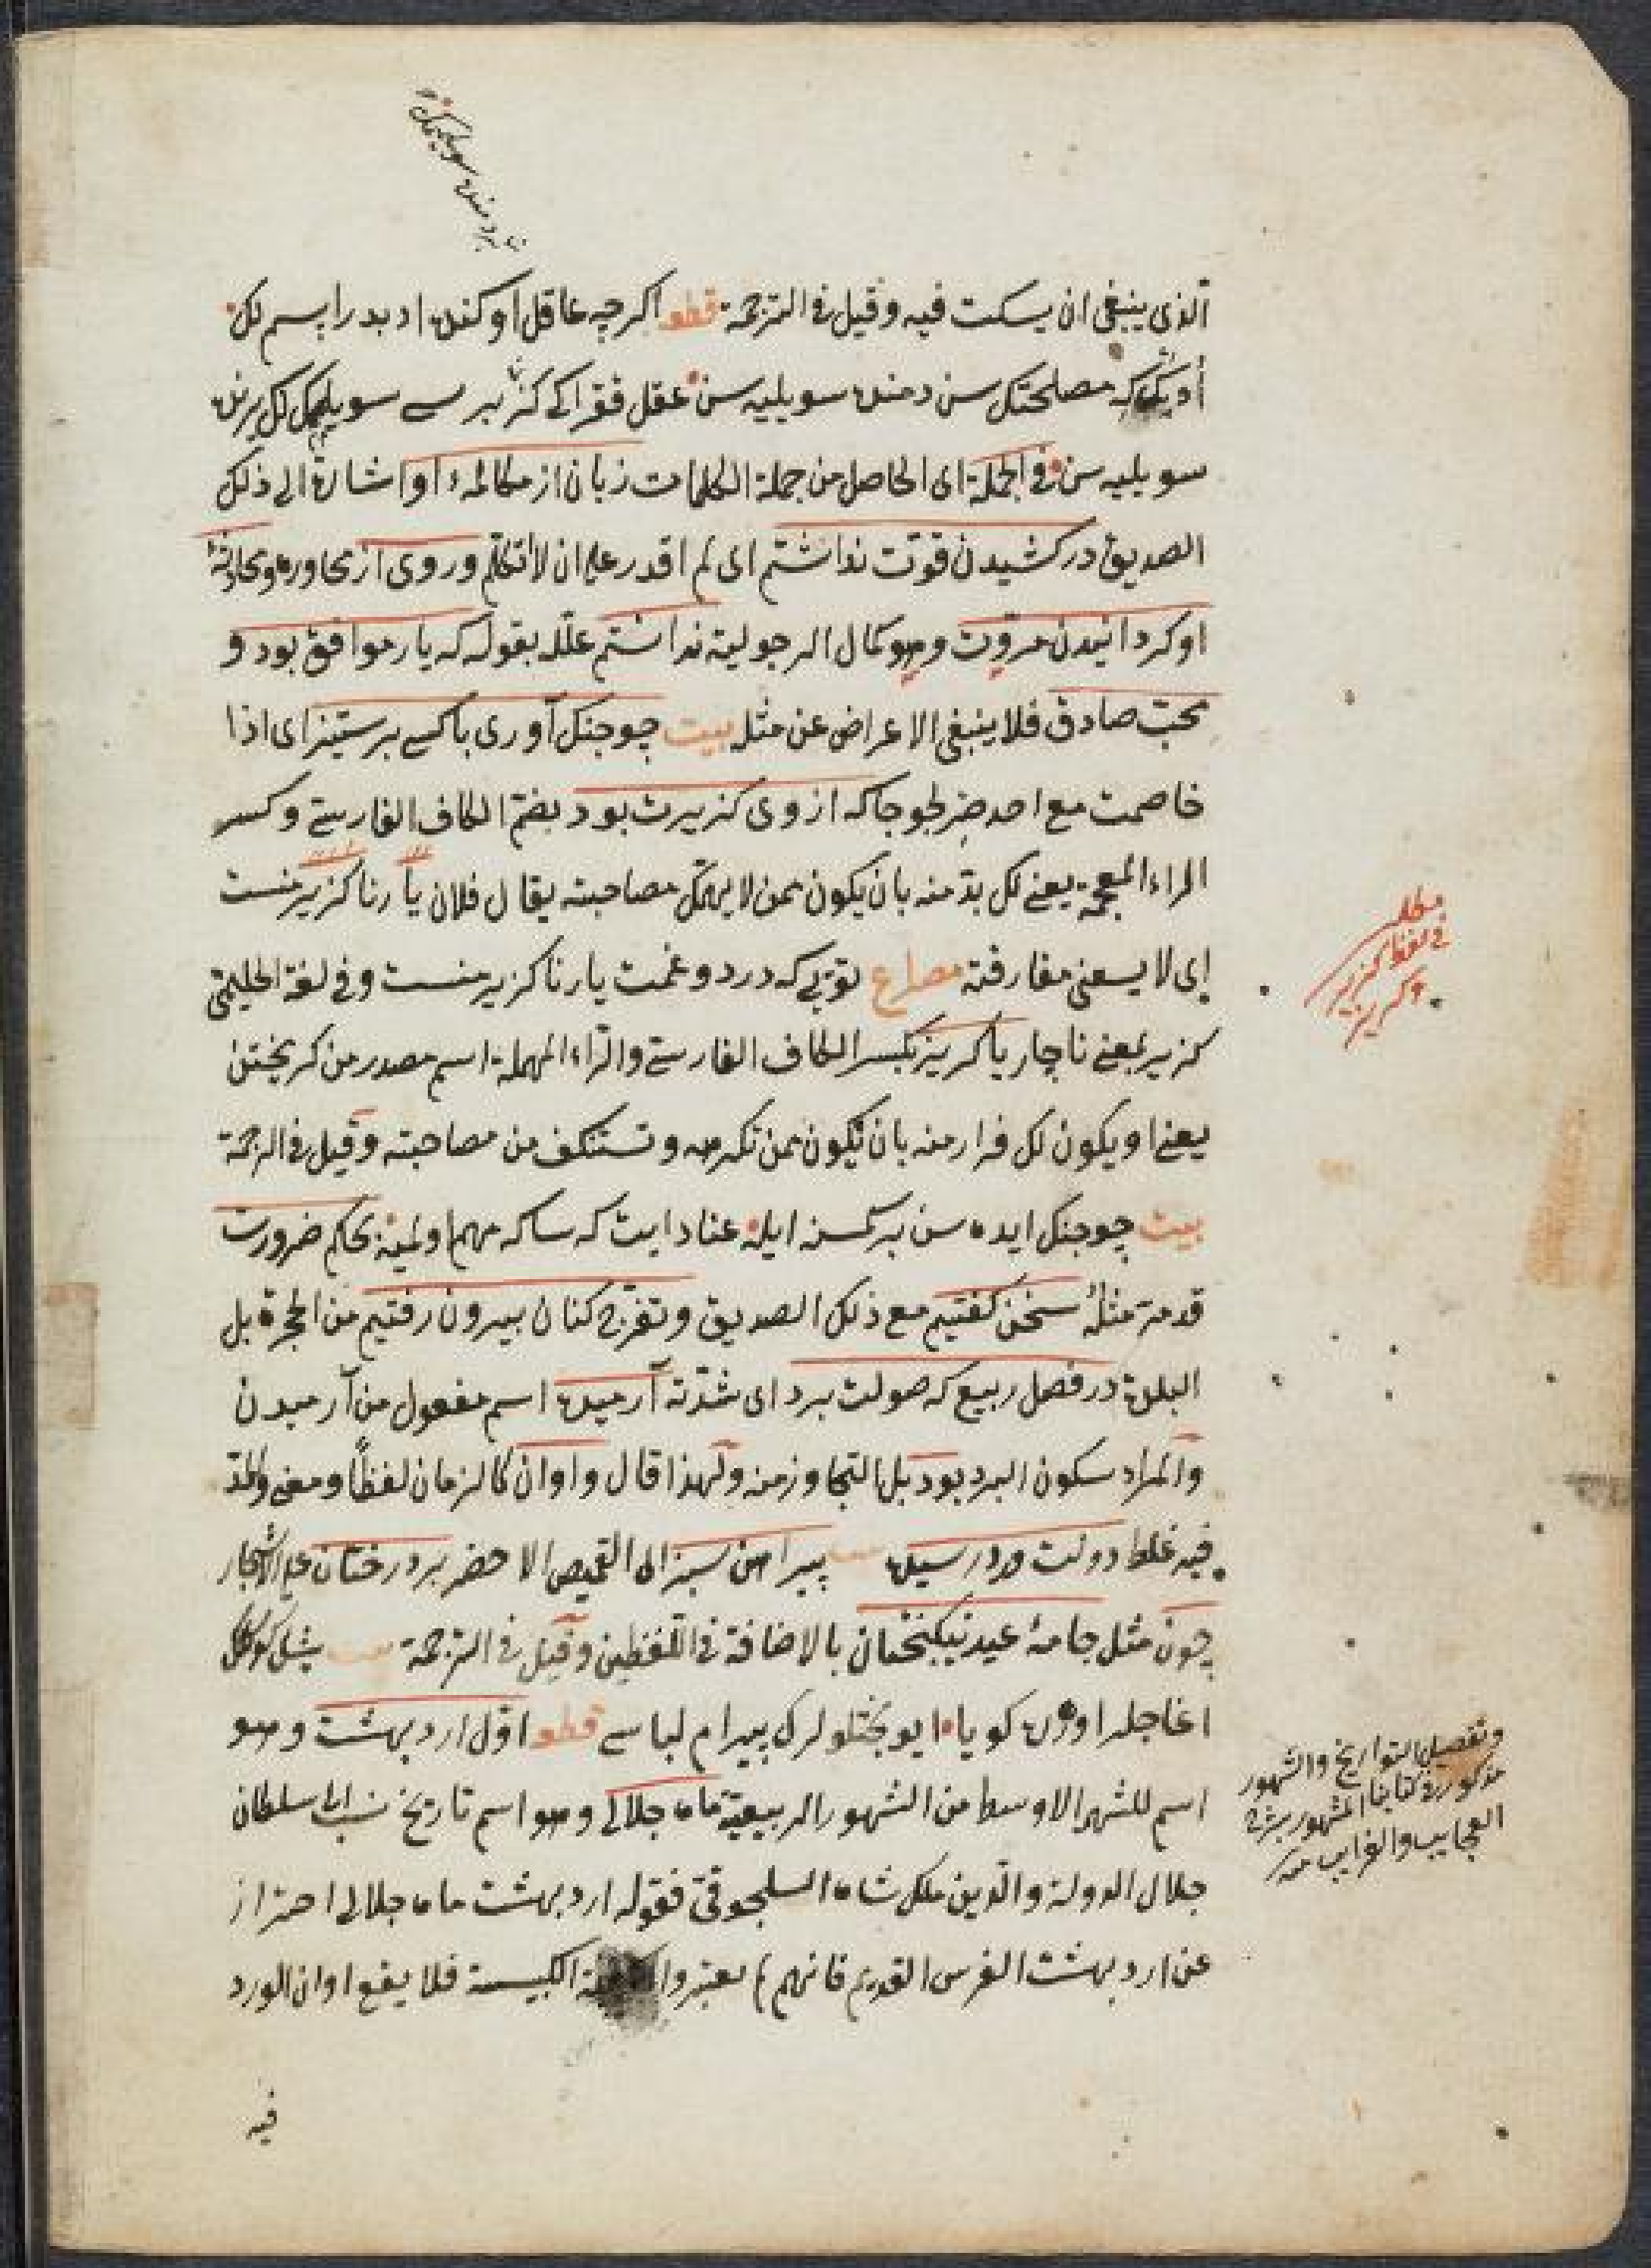 الذی ینبغی ان یسکت فیه وقیل فی الترجمة قطعه اکرچه عاقل اوکنده ادبدر ابسم لک
مصلحتک سن دمنده سویلیه سن عقل فقر ایکی بر سی سویلمک لک یرنده
سویلیه سن وفی الجملة ای الحاصل من جملة الکلمات زبان از مکالمهٔ او اشارة الی ذلک
الصدیق درکشیدن قوت نداشتم ای لم اقدر علی ان لا اتکلم وروی از محاورهٔ
او کردانیدن مروت وهو کمال الرجولیة نداشتم علله بقوله که یار موافق بود و
محب صادق فلا ینبغی الاعراض عن مثل بیت چو جنک آوری با کسی برستیز ای اذا
خاصمت مع احد ضر لجوجا که از وی کزیرت بود بضم الکاف الفارسی وکسر
الزاء المعجمة یعنی لک بد منه بان یکون ممن لا یهمک مصاحبته یقال فلان یار ناکزیر منست
ای لا یسعنی مفارقته مصراع تویی که درد وغمت یار ناکزیر منست وفی لغة الحلیمی
کزیر بمعنی ناچار یا کریز بکسر الکاف الفارسی والراء المهملة اسم مصدر من کریختن
یعنی او یکون لک فرار منه بان تکون ممن تکرهه وتستنکف من مصاحبته وقیل فی الترجمة
بیت چو جنک ایده سن بر کسنه ایله عناد ایت که ساکه مهم اولمیه بحکم ضرورت
قد مر مثله سخن کفتیم مع ذلک الصدیق وتفرج کنان بیرون رفتیم من الحجرة بل
البلدة در فصل ربیع که صولت برد ای شدته آرمیده اسم مفعول من آرمیدن
والمراد سکون البرد بود بل التجاوز منه ولهذا قال واوان کالزمان لفظا ومعنی والمد
فیه غلط دولت ورد رسیده بیت پیراهن سبز ای القمیص الاخضر بر درختان علی الاشجار
چون مثل جامهٔ عید نیکبختان بالاضافة فی اللفظین وقیل فی الترجمة بیت یشل کوملک
اغاجلر اوزره کویا ایو بختلولرک بیرام لباسی قطعه اول اردبهشت وهو
اسم للشهر الاوسط من الشهور الربیعیة ماه جلالی وهو اسم تاریخ نسب الی سلطان
جلال الدولة والدین ملک شاه السلجوقی فقوله اردبهشت ماه جلالی احتراز
عن اردبهشت الفرس القدیم فانهم لم یعتبروا الکبیسة فلا یقع اوان الورد
فیه
مطلب
فی لفظ کزیر
وکریز
وتفصیل التواریخ والشهور
مذکور فی کتابنا المشهور
العجایب والغرایب منه